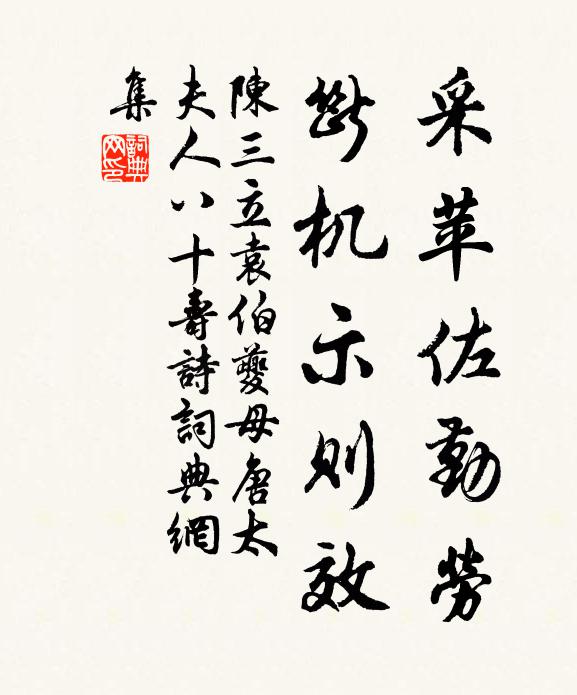 采苹佐勤勞
断机示则效
陳三立袁伯夔母唐太
夫人八十壽詩詞典網
集
詞典
网印